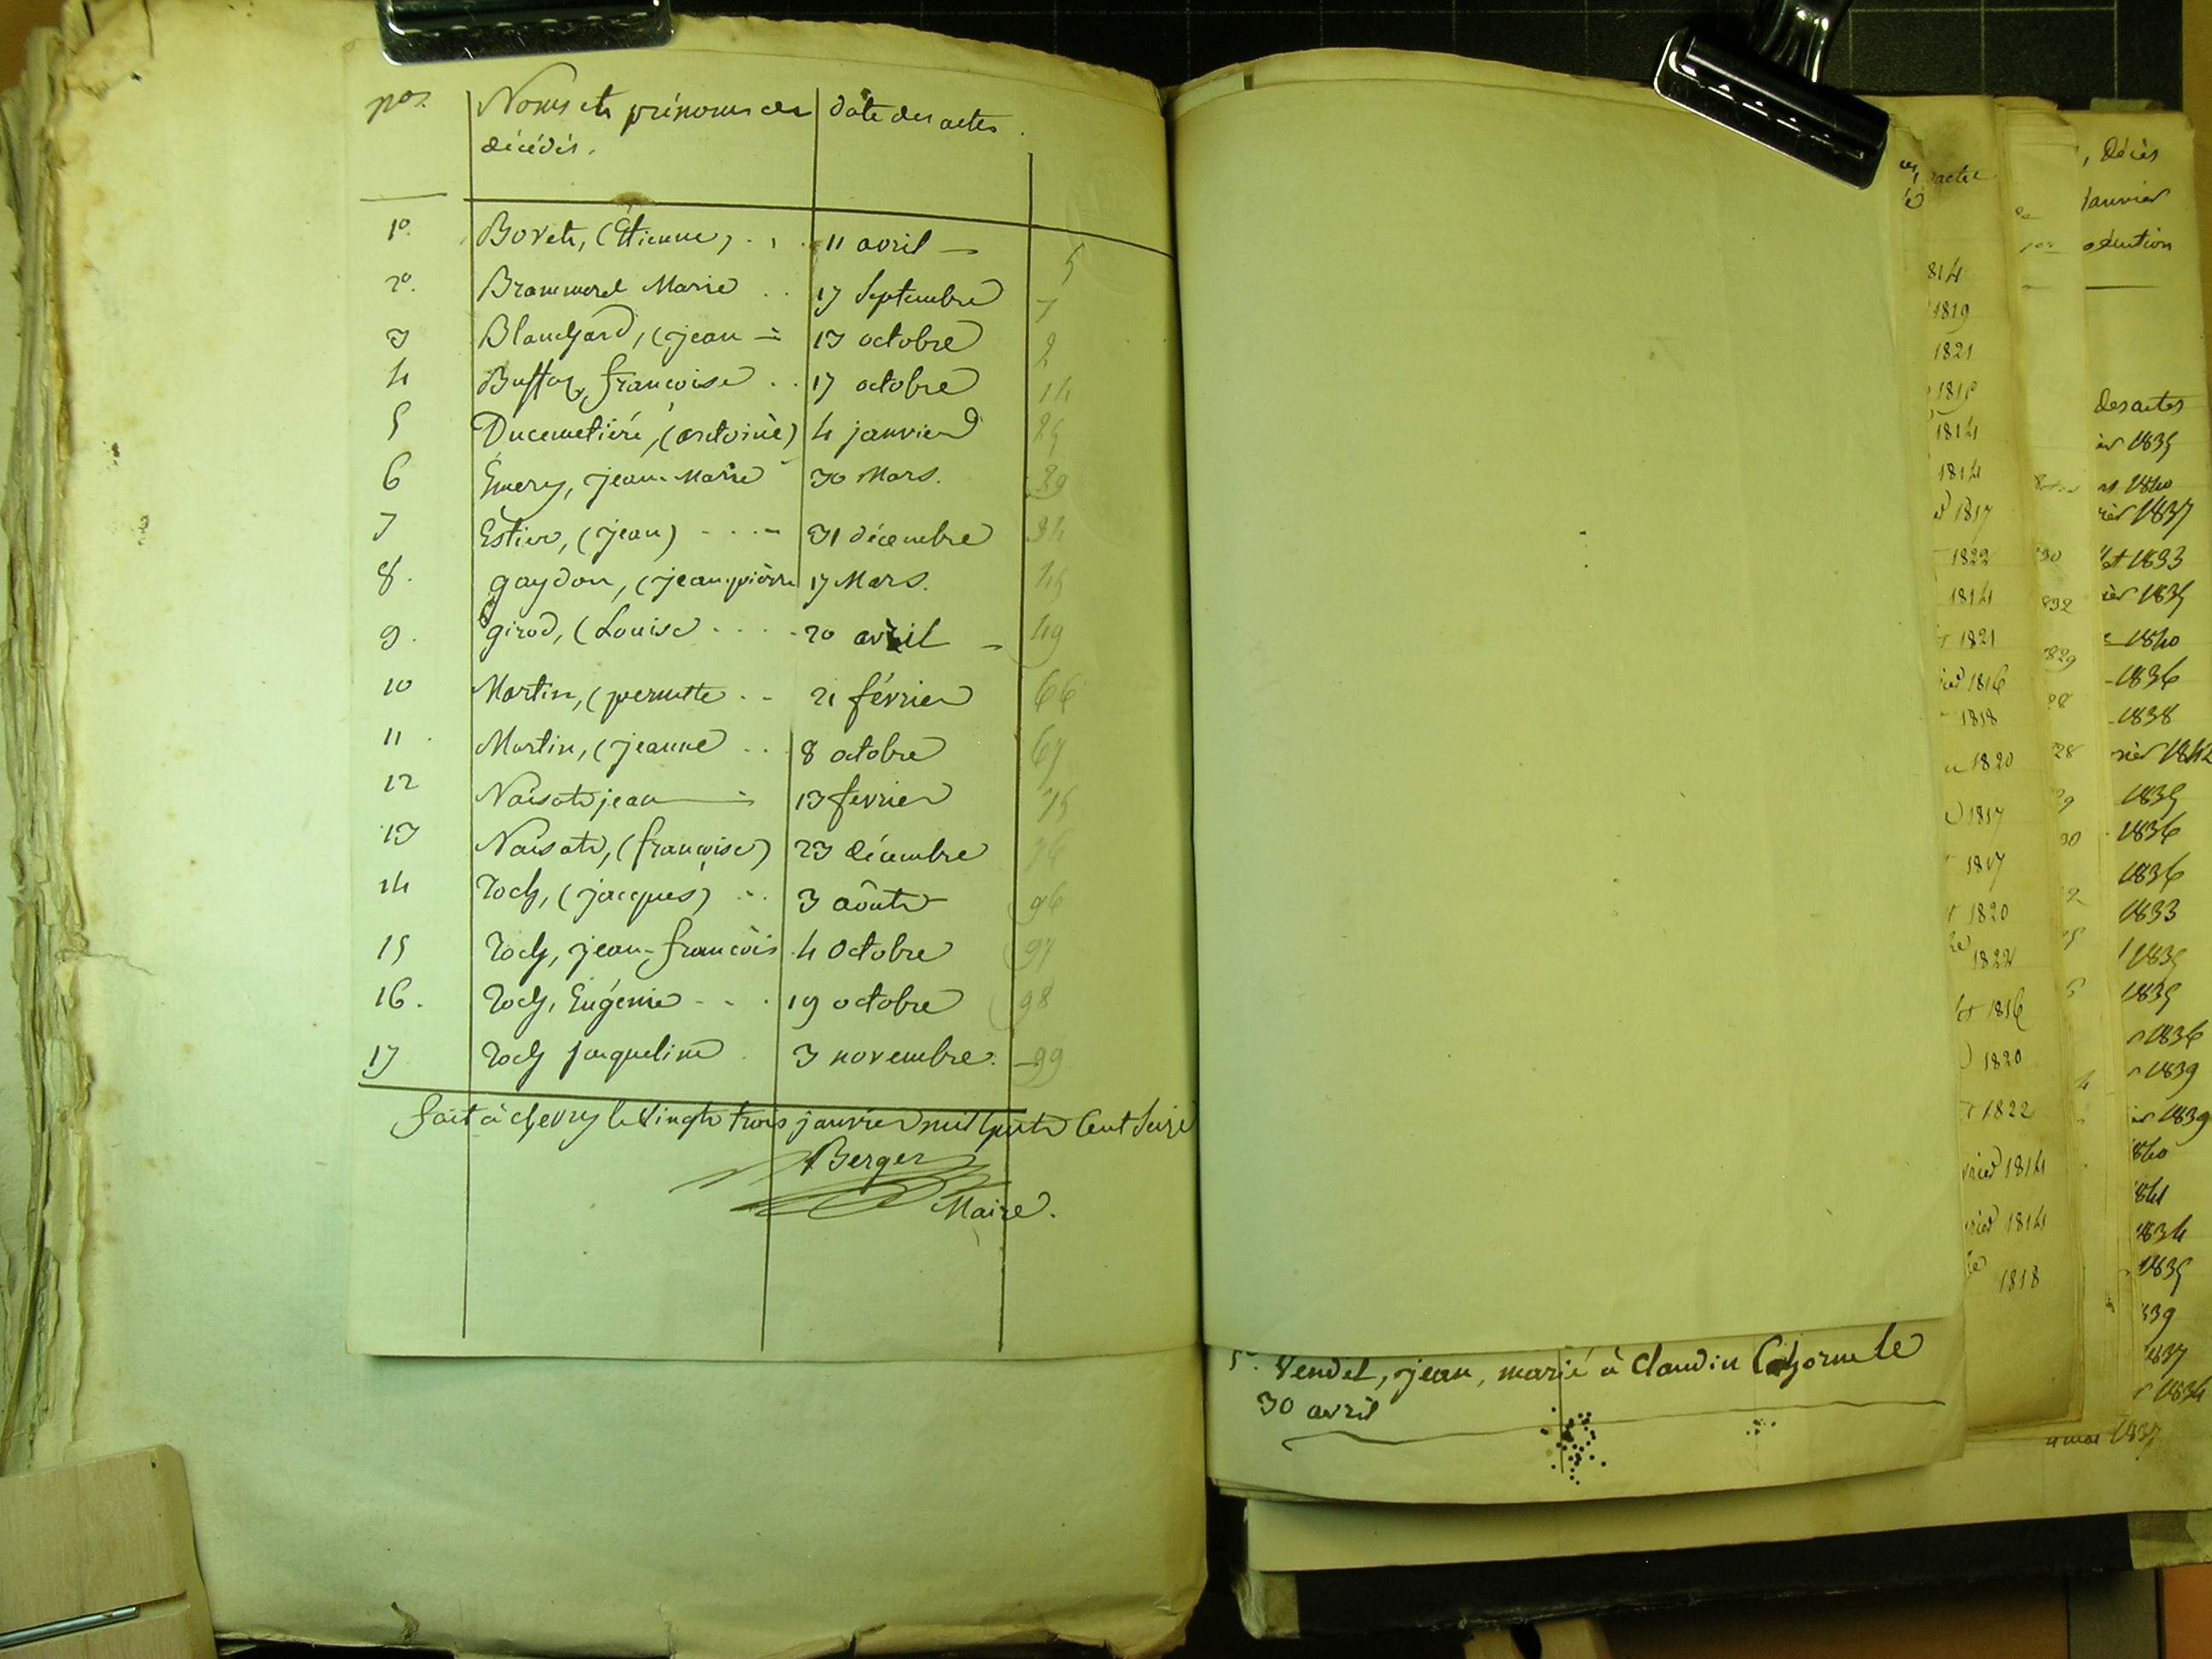 nos. Noms et prénoms des décédés. date des actes.
1o. Bovet, (Étienne) . . 11 avril — 5
2o. Brammerel Marie . . 17 Septembre 7
3 Blanchard, (jean = 13 octobre 2
4 françoise . . 17 octobre 14
5 Ducimetière, (antoine) 4 janvier 25
6 Émery, jean-Marie 30 Mars. 29
7 Estier, (jean) - . . - 31 décembre 34
8. gaydon, (jean-pierre 17 Mars. 45
9. girod, (Louise . . . . 20 avril — 49
10 Martin, (pernette . . 21 février 66
11. Martin, (jeanne . . 8 octobre 67
12 Naisat jean — 13 fevrier 75
13 Naisat, (françoise) 23 décembre 76
14 roch, (jacques) . . 3 aôut 96
15 roch, jean-françois 4 Octobre 97
16. roch, Eugénie - . . 19 octobre 98
17 roch jacqueline . 3 novembre. 99
fait à chevry le vingt trois janvier mil huit Cent Seize
Berger
Maire.
5o. Vendel, jean, marié à Claudin le
30 avril
acte
814
1819
1821
1814
1814
1817
1822
1814
1821
1816
1818
1820
1817
1817
1820
1822
1816
1820
1822
vrier 1814
vrier 1814
1818
30
832
829
28
28
29
30
, Décès
Janvier
des actes
1835
1840
1837
1833
1835
1840
1836
1838
1842
1835
1836
1836
1833
1835
1835
1836
1839
1839
840
841
1834
1835
839
1837
1834
1837